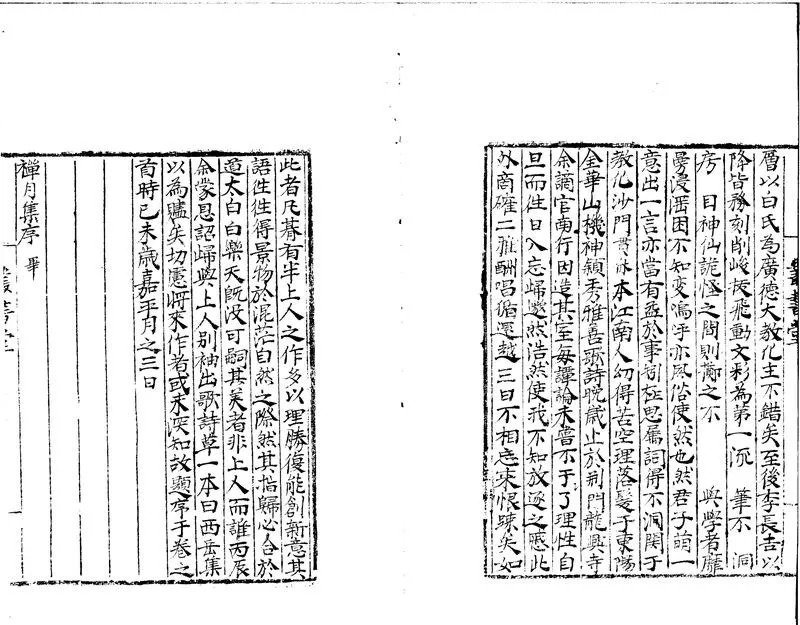 層以白氏為廣德大教化主不錯矣至後李長吉以
降皆務刻削峻拔飛動文彩為第一流 筆不 洞
房 目神仙詭怪之間則擲之不 與學者靡
曼浸淫困不知變嗚乎亦風俗使然也然君子萌一
意出一言亦當有益於事矧極思屬詞得不洞關于
教化沙門貫休本江南人幼得苦空理落髮于東陽
金華山機神穎秀雅善歌詩晩歲止於荆門龍興寺
余謫官南行因造其室每譚論未嘗不于了理性自
旦而徃日入忘歸邈然浩然使我不知放逐之慼此
外商確二雅酬唱循還越三日不相往來恨踈矣如
叢書堂
此者凡朞有半上人之作多以理勝復能創新意其
語徃徃得景物於混茫自然之際然其指歸必合於
道太白白樂天既没可嗣其美者非上人而誰丙辰
余蒙恩詔歸與上人别袖出歌詩草一本曰西岳集
以為贐矣切慮將來作者或未深知故題序于卷之
首時己未歲嘉平月之三日
禪月集序 畢
叢書堂